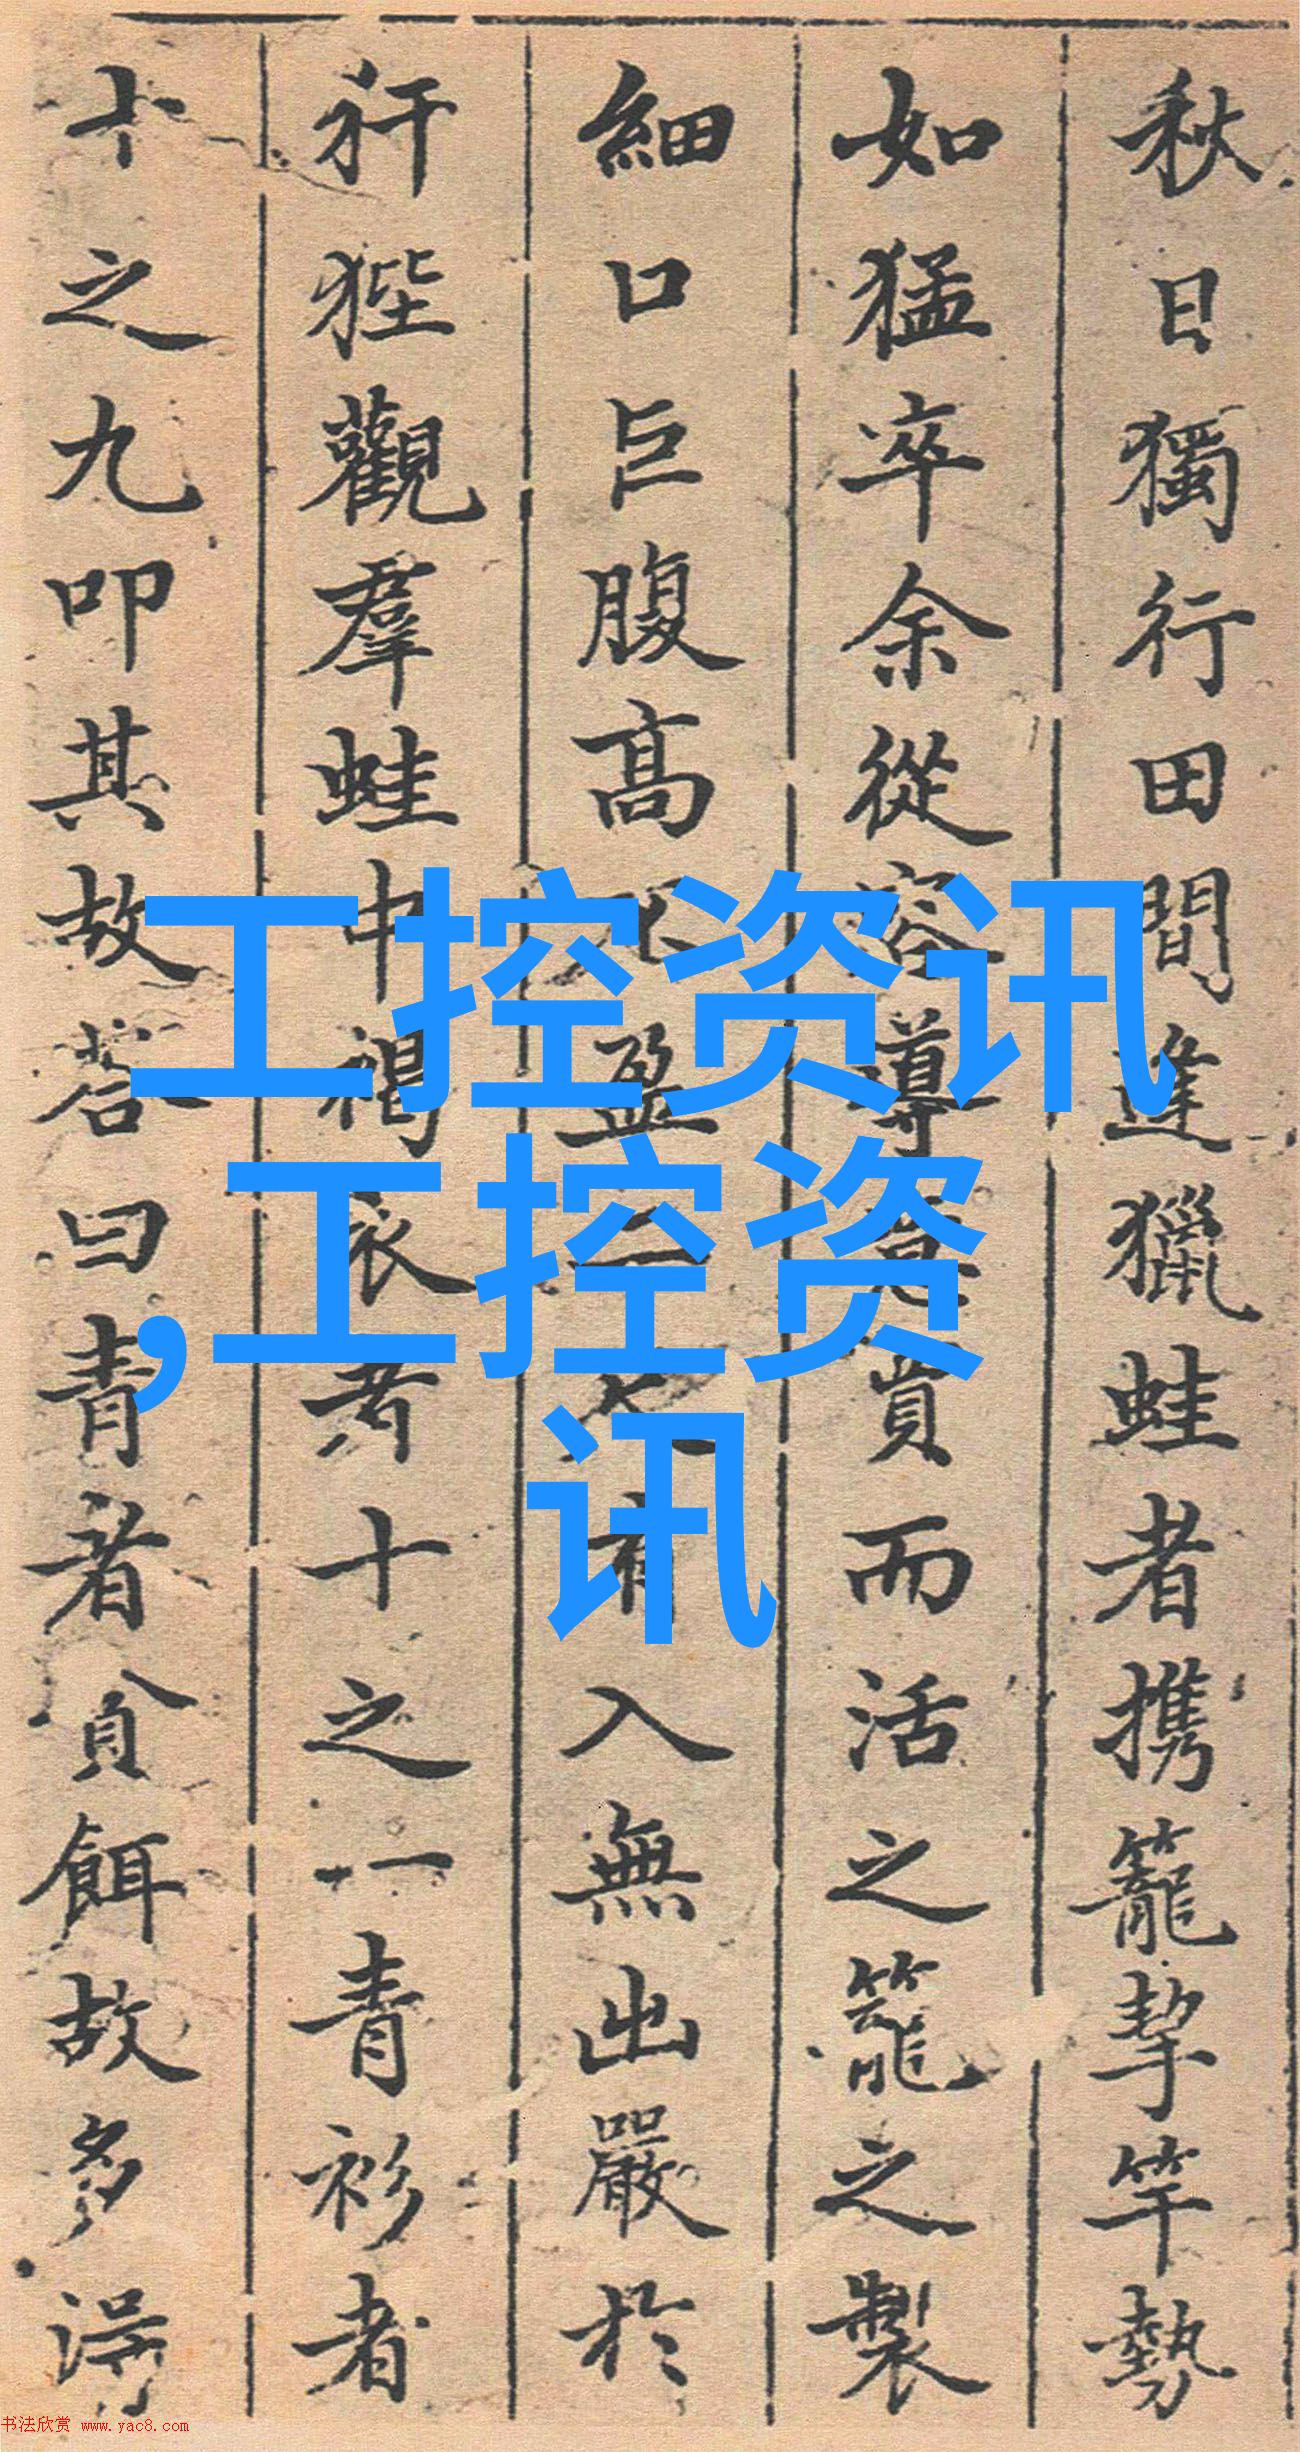 秋日獨行田間逢獵蛙者携籠挈竿勢
如猛卒余從容導意賞而活之籠之製
細口巨腹高不盈二尺有入無出嚴於
犴狴觀羣蛙中褐衣者十之一青衫者
十之九叩其故答曰青者貪餌故多得
工控资讯
,工控资
讯
书法欣赏 www.yac8.com